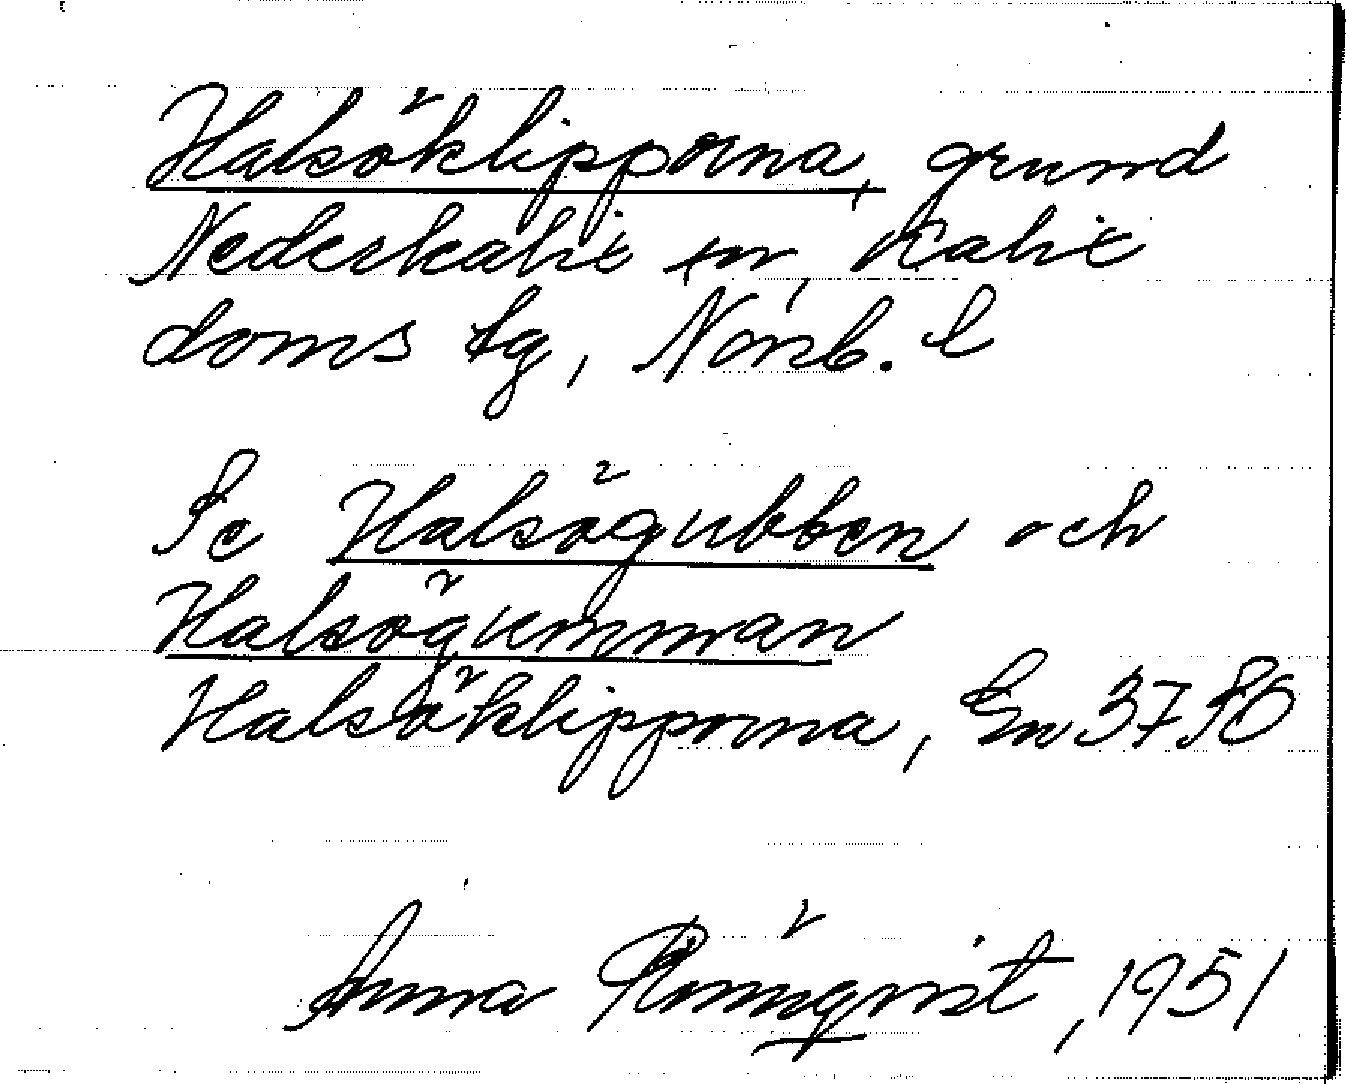 Halsöklipporna, grund
Nederkalix sn, Kalix
doms tg, Norrb. l
Se Halsögubben och
Halsögumman
Halsöklipporna, En 3780
Anna Rönnqvist, 1951